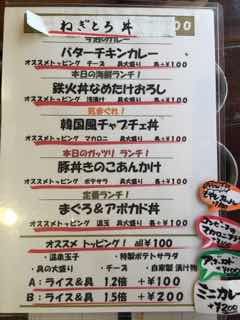 ねぎとろ丼
今週のカレー
バターチキンカレー
オススメトッピング チーズ 具大盛り 各+¥100
本日の海鮮ランチ!
鉄火丼なめたけおろし
オススメトッピング 浅漬け 具大盛り 各+¥100
気まぐれ!
韓国風チャプチェ丼
オススメトッピング マカロニ 具大盛り 各+¥100
本日のガッツリ ランチ!
豚丼きのこあんかけ
オススメトッピング ポテサラ 具大盛り 各+¥100
定番ランチ!
まぐろ&アボカド丼
オススメトッピング 温玉 具大盛り 各+¥100
オススメ トッピング! all¥100
・温泉玉子 ・特製ポテトサラダ
・具の大盛り ・チーズ ・自家製 漬け物
A:ライス&具 1.2倍 +¥100
B:ライス&具 1.5倍 +¥200
ミニカレー
+¥200